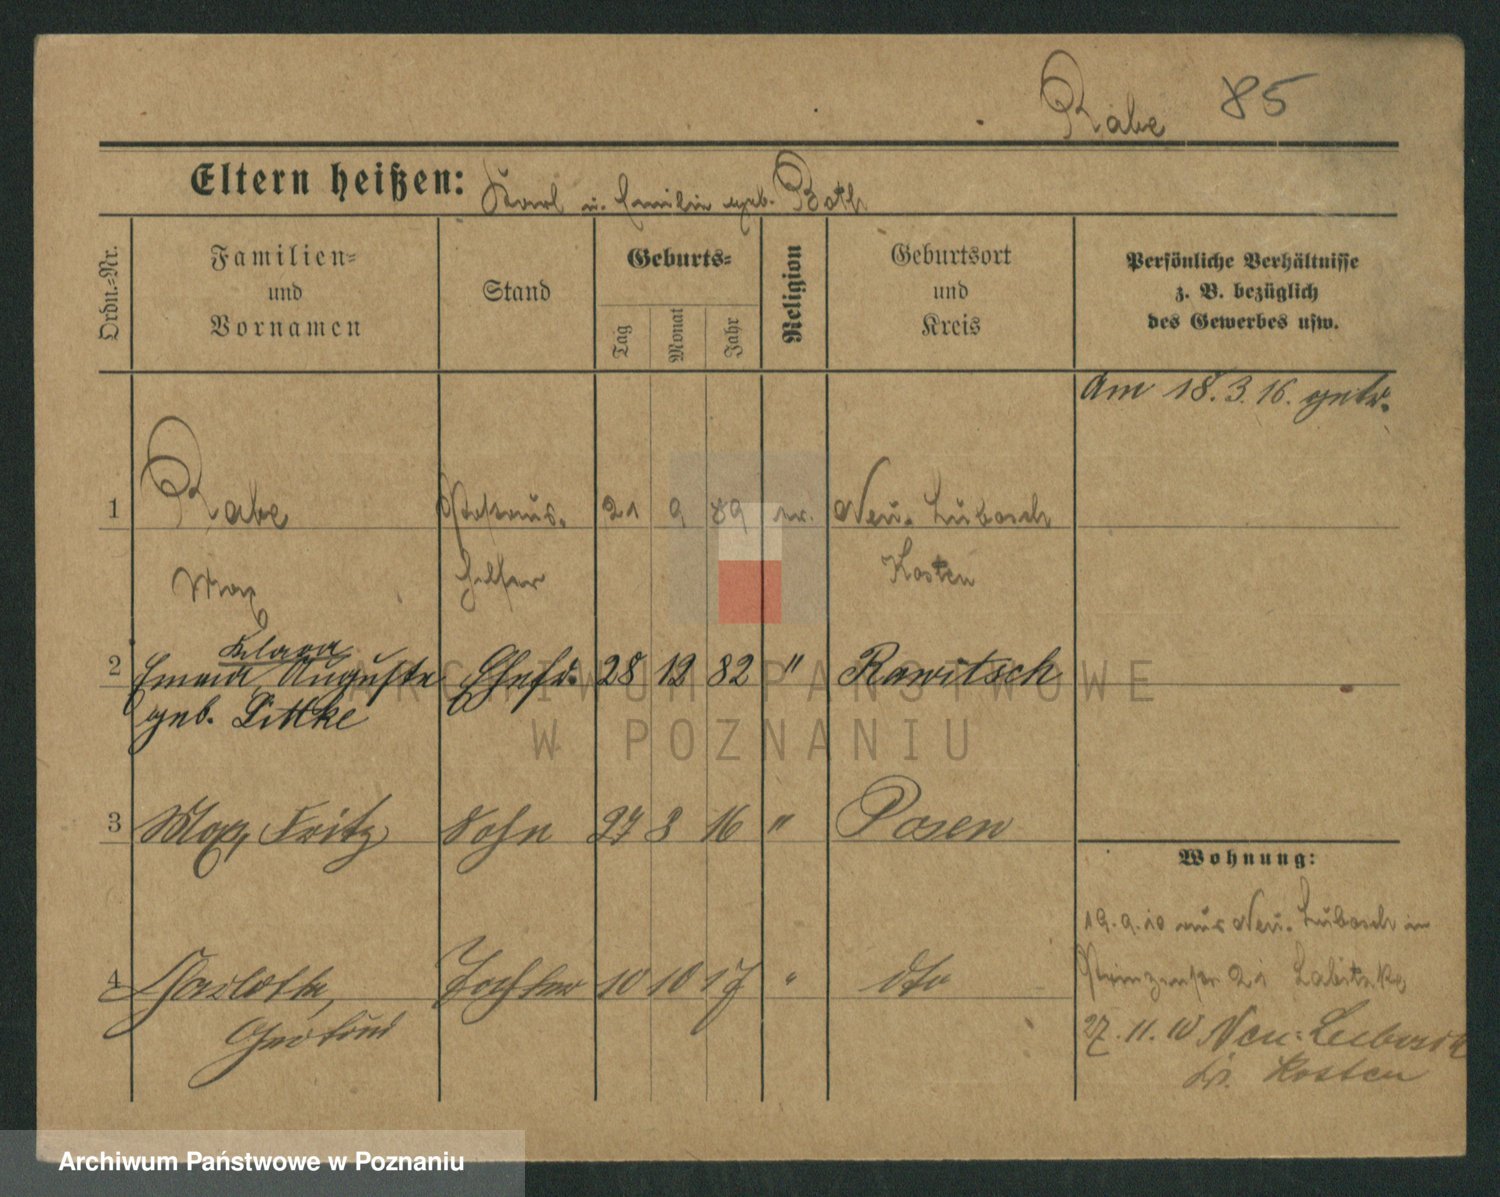 Rabe 85
Eltern heißen: Karl u. Emilie geb. Roth
Ordn.-Nr.
Familien-
und
Vornamen
Stand
Geburts-
Tag
Monat
Jahr
Religion
Geburtsort
und
Kreis
Persönliche Verhältnisse
z. B. bezüglich
des Gewerbes usw.
Am 18.3.16. getr.
1 Rabe Postaus- 21 9 89 Neu-Lubosch
Max helfer Kosten
Klara
2 Emma Auguste Ehefr. 28 12 82 " Rawitsch
geb. Littke
3 Max, Fritz Sohn 27 3 16 " Posen
Wohnung:
19.9.10 aus Neu-Lubosch in
4 Charlotte, Tochter 10 10 17 " dto
21
Gertrud
27.11.10 Neu-Lubosch
Kr. Kosten
ARCHIWUM PAŃSTWOWE
W POZNANIU
Archiwum Państwowe w Poznaniu